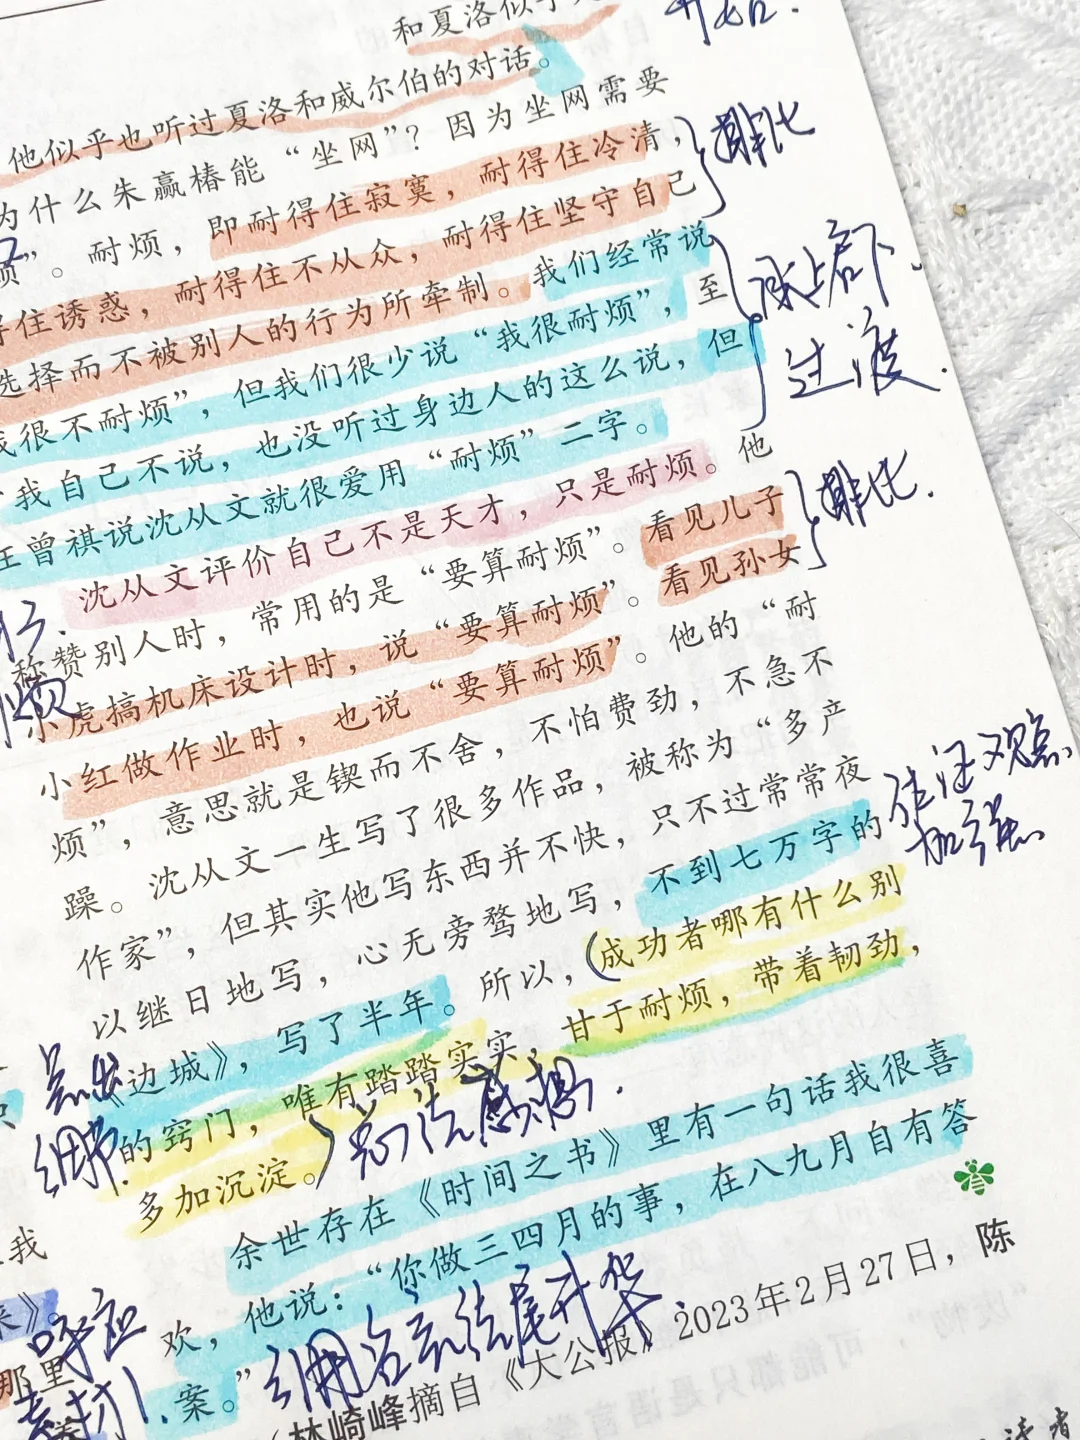 和夏洛似乎
他似乎也听过夏洛和威尔伯的对话。
为什么朱赢椿能“坐网”？因为坐网需要
烦”。耐烦，即耐得住寂寞，耐得住冷清，
得住诱惑，耐得住不从众，耐得住坚守自己
选择而不被别人的行为所牵制。我们经常说
我很不耐烦”，但我们很少说“我很耐烦”，至
我自己不说，也没听过身边人的这么说，但
汪曾祺说沈从文就很爱用“耐烦”二字。
沈从文评价自己不是天才，只是耐烦。他
称赞别人时，常用的是“要算耐烦”。看见儿子
小虎搞机床设计时，说“要算耐烦”。看见孙女
小红做作业时，也说“要算耐烦”。他的“耐
烦”，意思就是锲而不舍，不怕费劲，不急不
躁。沈从文一生写了很多作品，被称为“多产
作家”，但其实他写东西并不快，只不过常常夜
以继日地写，心无旁骛地写，不到七万字的
《边城》，写了半年。所以，成功者哪有什么别
的窍门，唯有踏踏实实，甘于耐烦，带着韧劲，
多加沉淀。
余世存在《时间之书》里有一句话我很喜
欢，他说：“你做三四月的事，在八九月自有答
案。”
林崎峰摘自《大公报》2023年2月27日，陈
排比
承上启下
过渡.
排比.
佐证观点、
加强
细节.
引用名言结尾升华.
呼应
我
来》。
那里